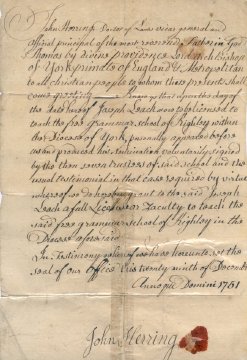 John Herring Doctor of Laws vicar general and
official principal of the most reverend Father in God
Thomas by divine providence Lord Archbishop
of York primate of England & Metropolitan
to all christian people to whom these presents shall
come greeting
day of the date hereof Joseph Leach was licensed to
teach the free grammar school of Highley within
the Diocese of York, personally appeared before
us and produced his nomination voluntarily signed
by the then seven trustees of said school and the
usual testimonial in that case required by virtue
whereof we do hereby grant to the said Joseph
Leach a full Licence or Faculty to teach the
said free grammar school of Highley in the
Diocese aforesaid
In testimony whereof we have hereunto set the
seal of our Office this twenty ninth of
Annoque Domini 1751
John Herring